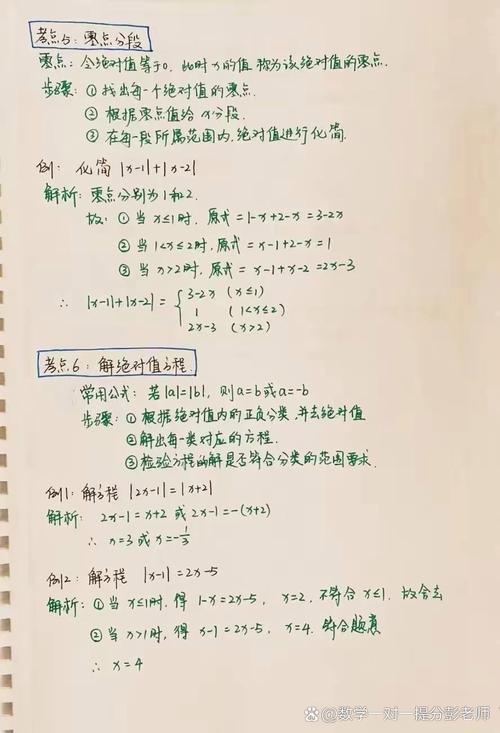 考点5：零点分段
零点：令绝对值等于0，此时x的值称为该绝对值的零点.
步骤：①找出每一个绝对值的零点.
②根据零点值给x分段.
③在每一段所属范围内，绝对值进行化简.
例：化简 |x-1|+|x-2|
解析：零点分别为1和2.
故：①当 x≤1时，原式=1-x+2-x=3-2x
②当 1<x≤2时，原式=x-1+2-x=1
③当 x>2时，原式=x-1+x-2=2x-3
∴ |x-1|+|x-2|= { 3-2x (x≤1)
1 (1<x≤2)
2x-3 (x>2)
考点6：解绝对值方程.
常用公式：若|a|=|b|，则a=b或a=-b
步骤：①根据绝对值内的正负分类，并去绝对值
②解出每一类对应的方程.
③检验方程的解是否符合分类的范围要求.
例1：解方程 |2x-1|=|x+2|
解析：2x-1=x+2 或 2x-1=-(x+2)
∴ x=3 或 x=-1/3
例2：解方程 |x-1|=2x-5
解析：①当 x≤1时，得 1-x=2x-5，x=2，不符合 x≤1，故舍去
②当 x>1时，得 x-1=2x-5，x=4，符合题意
∴ x=4
@数学一对一提分彭老师